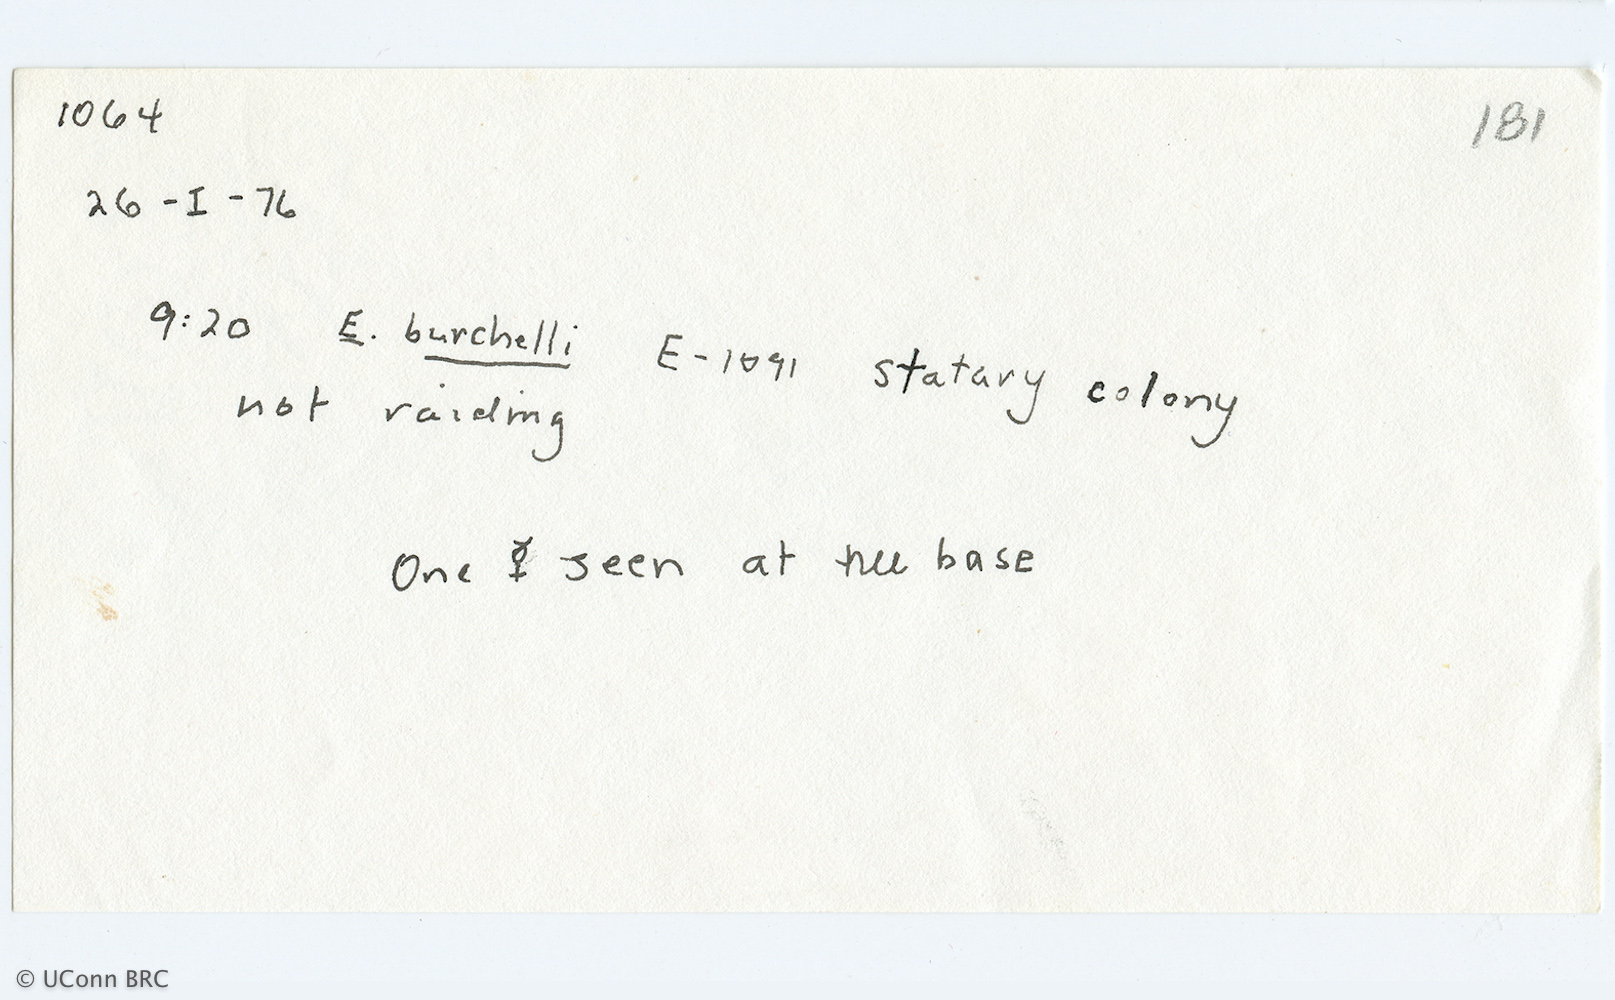 1064
181
26-I-76
9:20 E. burchelli E-1091 statary colony
not raiding
One ☿ seen at tree base
© UConn BRC